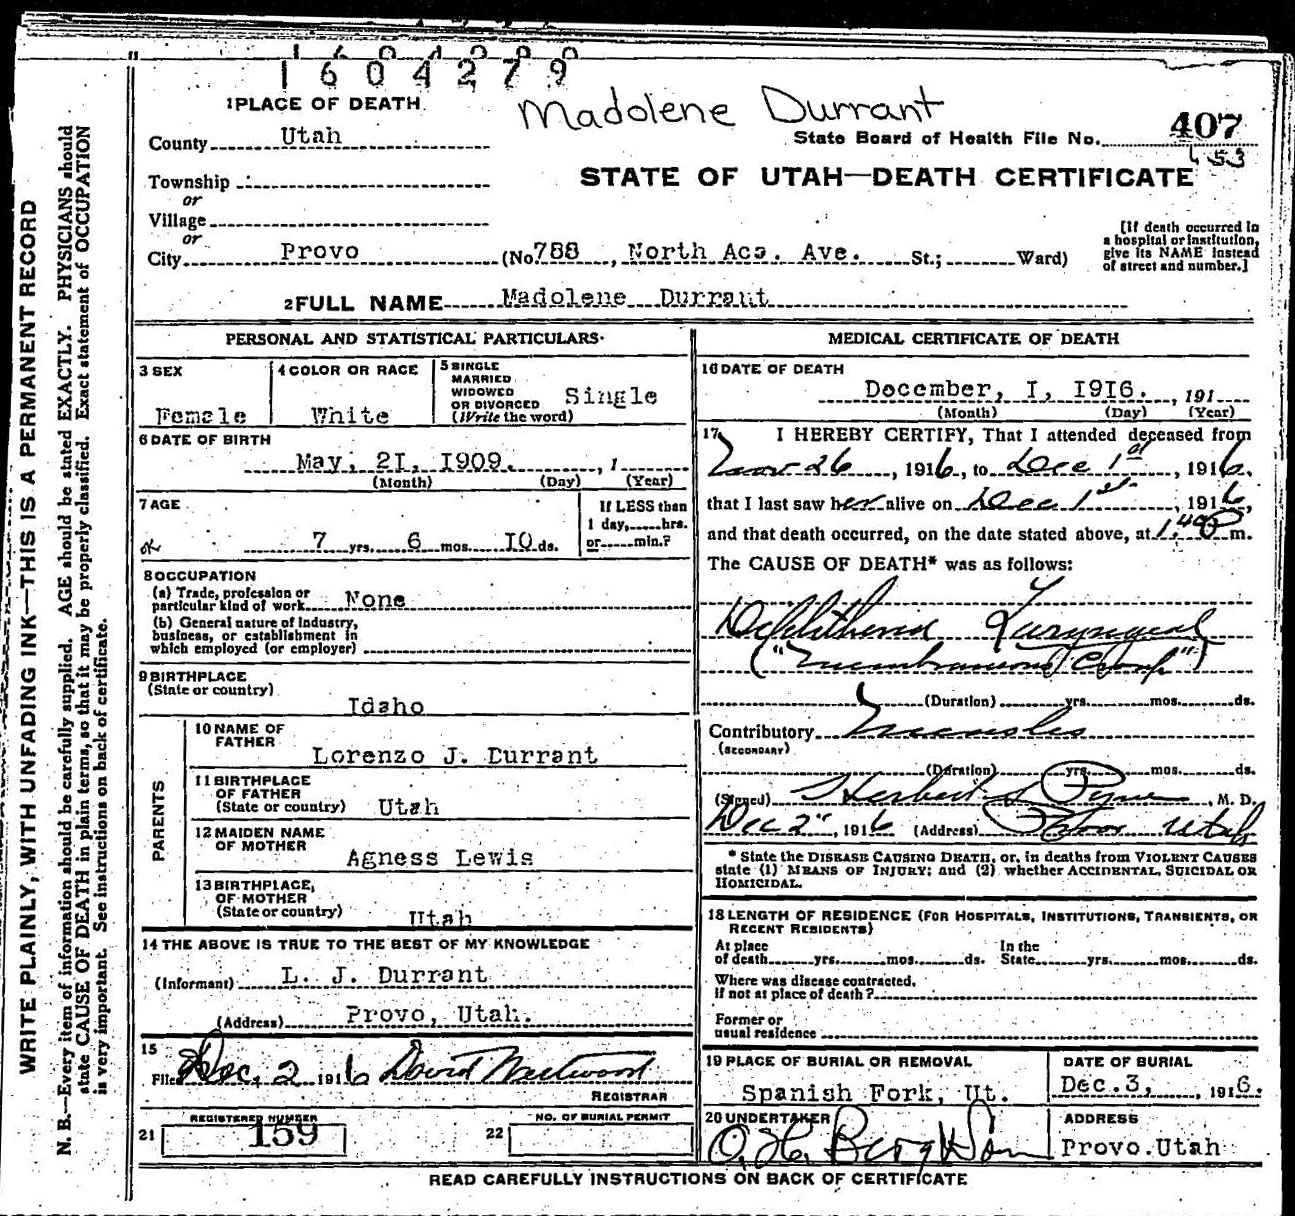 1604279
Madolene Durrant
1 PLACE OF DEATH
County Utah
State Board of Health File No. 407
453
STATE OF UTAH—DEATH CERTIFICATE
Township
or
Village
or
City Provo (No 788, North Aca. Ave. St.; Ward)
[If death occurred in
a hospital or institution,
give its NAME instead
of street and number.]
2 FULL NAME Madolene Durrant
PERSONAL AND STATISTICAL PARTICULARS
3 SEX
Female
4 COLOR OR RACE
White
5 SINGLE
MARRIED
WIDOWED
OR DIVORCED
(Write the word)
Single
6 DATE OF BIRTH
May, 21, 1909. , 1
(Month) (Day) (Year)
7 AGE
7 yrs. 6 mos. 10 ds.
If LESS than
1 day, hrs.
or min.?
8 OCCUPATION
(a) Trade, profession or
particular kind of work None
(b) General nature of Industry,
business, or establishment in
which employed (or employer)
9 BIRTHPLACE
(State or country)
Idaho
PARENTS
10 NAME OF
FATHER
Lorenzo J. Durrant
11 BIRTHPLACE
OF FATHER
(State or country) Utah
12 MAIDEN NAME
OF MOTHER
Agness Lewis
13 BIRTHPLACE,
OF MOTHER
(State or country) Utah
14 THE ABOVE IS TRUE TO THE BEST OF MY KNOWLEDGE
(Informant) L. J. Durrant
(Address) Provo, Utah.
15
Filed Dec. 2 1916 David Westwood
REGISTRAR
REGISTERED NUMBER
21 159
NO. OF BURIAL PERMIT
22
MEDICAL CERTIFICATE OF DEATH
16 DATE OF DEATH
December, 1, 1916. , 191
(Month) (Day) (Year)
17 I HEREBY CERTIFY, That I attended deceased from
Nov 26, 1916, to Dec 1st, 1916,
that I last saw her alive on Dec 1st, 1916,
and that death occurred, on the date stated above, at 1.40 P m.
The CAUSE OF DEATH* was as follows:
Diphtheria Laryngeal
("Membranous Croup")
(Duration) yrs. mos. ds.
Contributory Measles
(SECONDARY)
(Duration) yrs. mos. ds.
(Signed) Herbert S Pyne, M. D.
Dec 2", 1916 (Address) Provo Utah
* State the DISEASE CAUSING DEATH, or, in deaths from VIOLENT CAUSES
state (1) MEANS OF INJURY; and (2) whether ACCIDENTAL, SUICIDAL OR
HOMICIDAL.
18 LENGTH OF RESIDENCE (FOR HOSPITALS, INSTITUTIONS, TRANSIENTS, OR
RECENT RESIDENTS)
At place
of death yrs. mos. ds.
In the
State yrs. mos. ds.
Where was disease contracted,
If not at place of death?
Former or
usual residence
19 PLACE OF BURIAL OR REMOVAL
Spanish Fork, Ut.
DATE OF BURIAL
Dec. 3, , 1916.
20 UNDERTAKER
O. H. Berg & Son
ADDRESS
Provo. Utah
READ CAREFULLY INSTRUCTIONS ON BACK OF CERTIFICATE
WRITE PLAINLY, WITH UNFADING INK—THIS IS A PERMANENT RECORD
N. B.—Every item of information should be carefully supplied. AGE should be stated EXACTLY. PHYSICIANS should
state CAUSE OF DEATH in plain terms, so that it may be properly classified. Exact statement of OCCUPATION
is very important. See instructions on back of certificate.